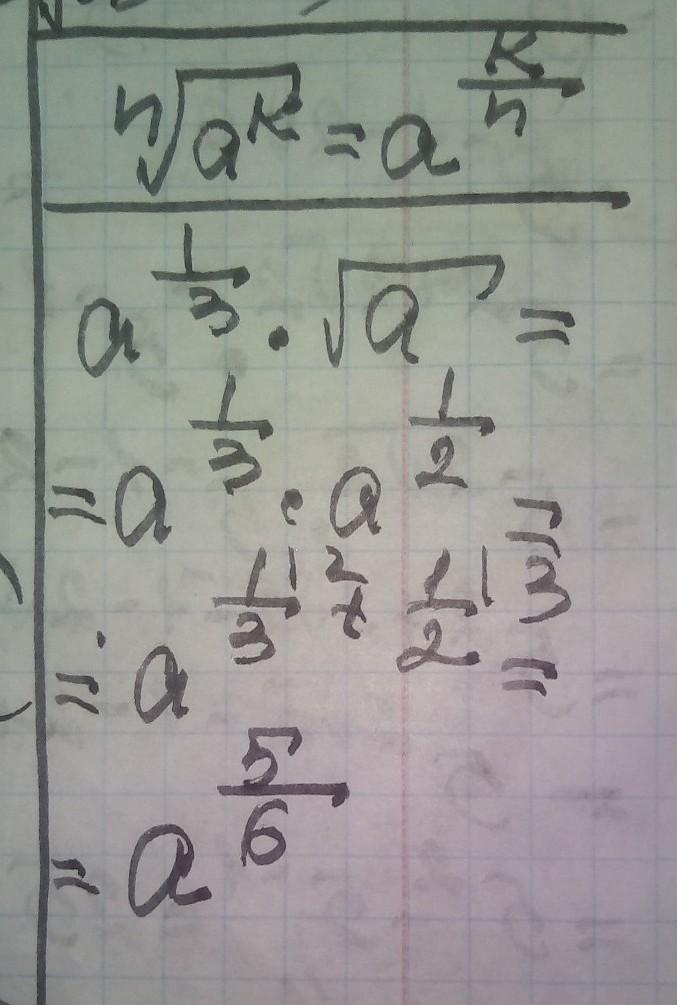 ⁿ√(a^k) = a^(k/n)
a^(1/3) · √a =
= a^(1/3) · a^(1/2) =
= a^(1/3|2 + 1/2|3) =
= a^(5/6)